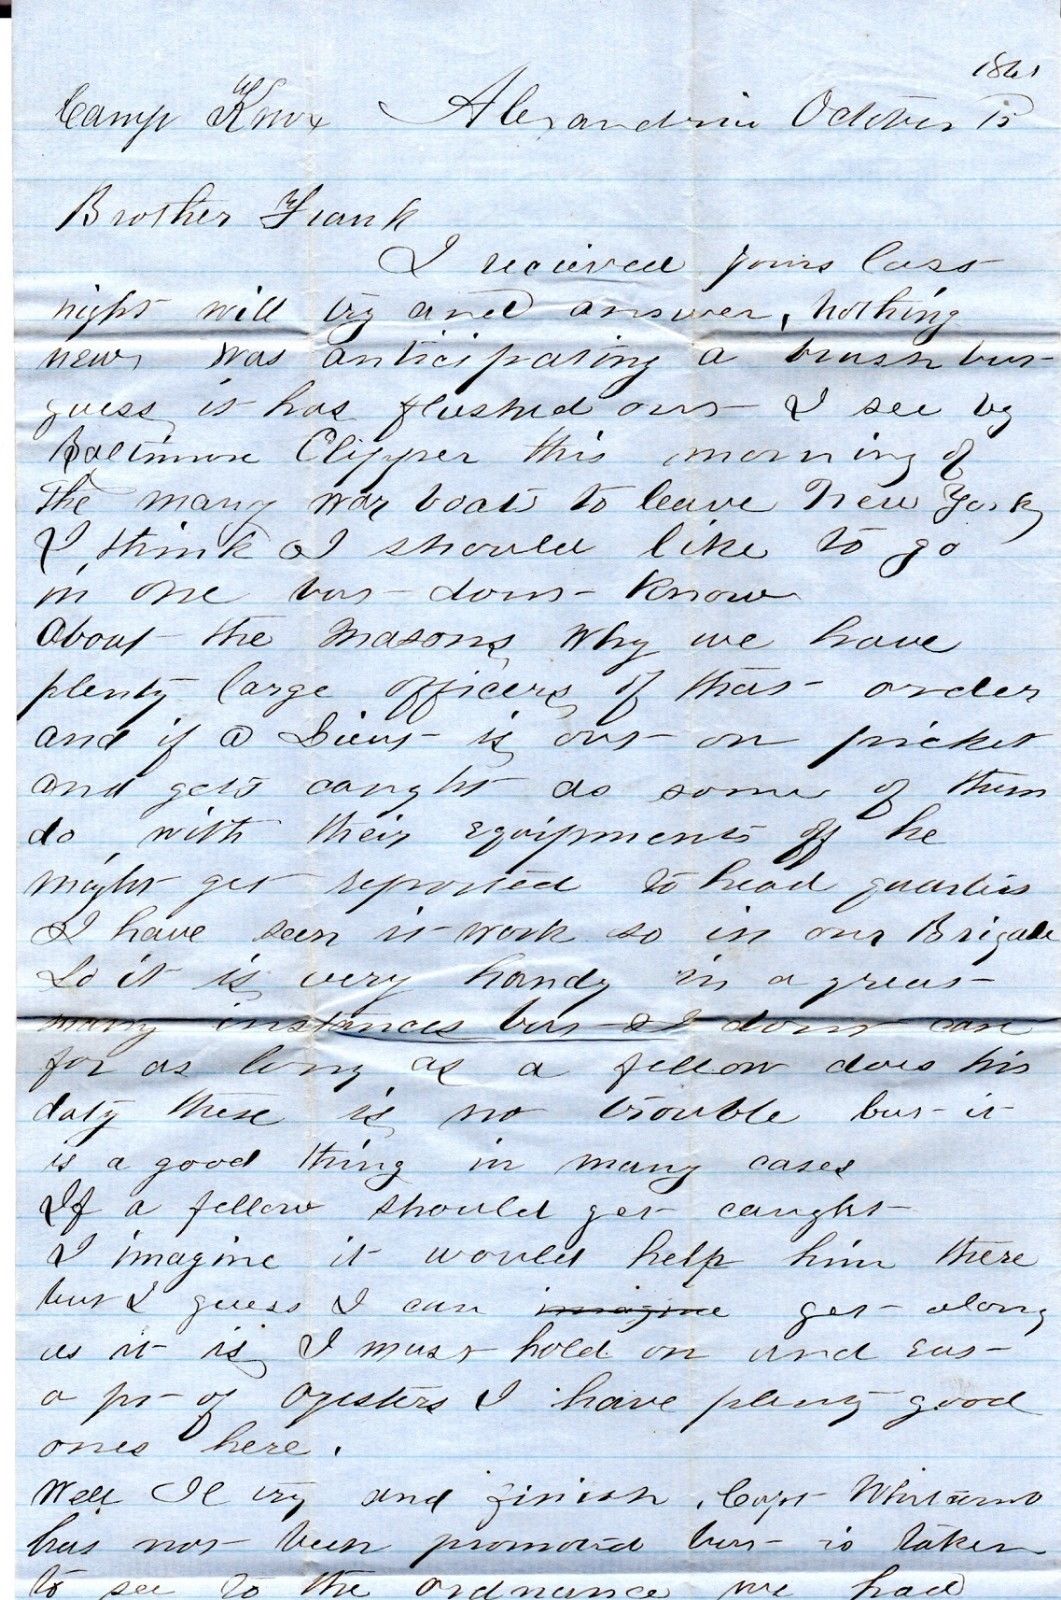 1861
Camp Knox Alexandria October 15
Brother Frank
I recieved yours last
night will try and answer, Nothing
new, was anticipating a brush but
guess it has flashed out I see by
Baltimore Clipper this morning of
the many war boats to leave New York
I think I should like to go
in one but dont know
About the Masons, Why we have
plenty large officers of that order
and if a Lieut is out on picket
and gets caught as some of them
do with their equipments off he
might get reported to head quarters
I have seen it work so in our Brigade
So it is very handy in a great
many instances but I dont care
for as long as a fellow does his
duty there is no trouble but it
is a good thing in many cases
If a fellow should get caught
I imagine it would help him there
but I guess I can imagine get along
as it is, I must hold on and eat
a pt of Oysters I have plenty good
ones here.
Well Il try and finish, Capt
has not been promoted but is taken
to see to the ordnance we had